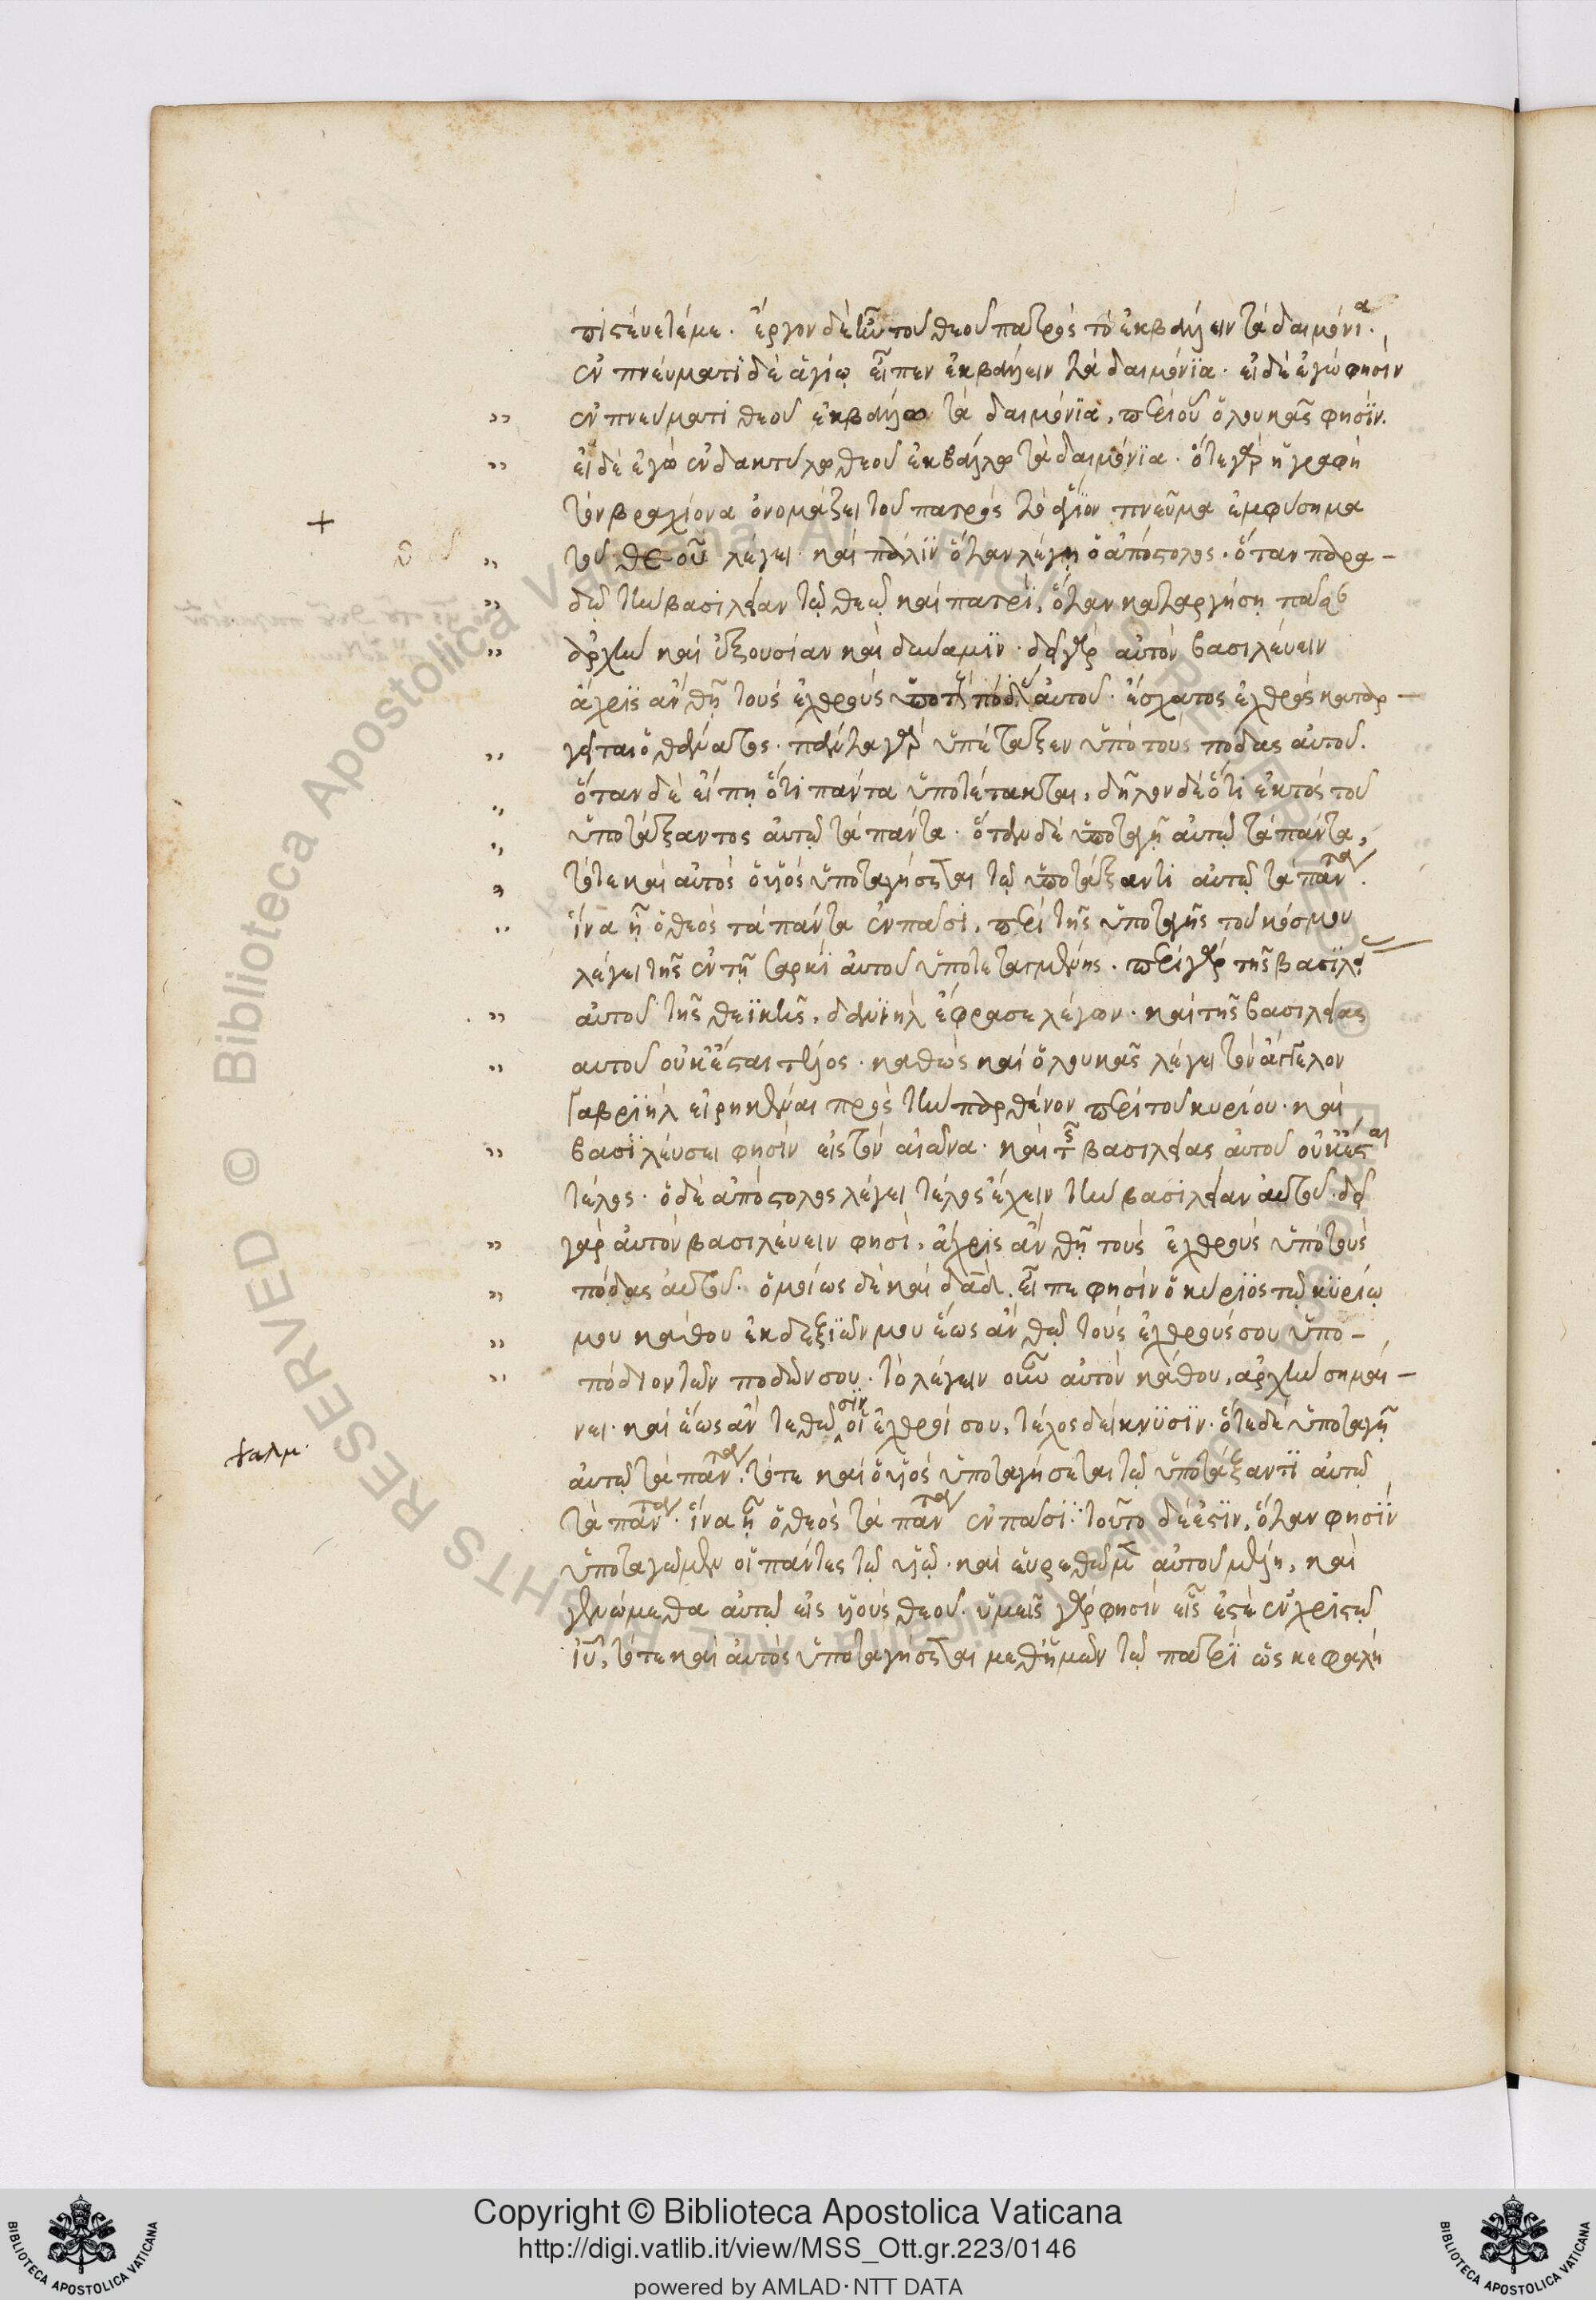 πιςεύετέ με. ἔργον δὲ ἦν τοῦ θεοῦ πατρὸς τὸ ἐκβάλλειν τὰ δαιμόνια.
ἐν πνεύματι δὲ ἁγίῳ εἶπεν ἐκβάλλειν τὰ δαιμόνια. εἰ δὲ ἐγώ φησὶν
ἐν πνεύματι θεοῦ ἐκβάλλω τὰ δαιμόνια, περὶ οὗ ὁ λουκᾶς φησὶν.
εἰ δὲ ἐγὼ ἐν δακτύλῳ θεοῦ ἐκβάλλω τὰ δαιμόνια. ὅτε γὰρ ἡ γραφὴ
τὸν βραχίονα ὀνομάζει τοῦ πατρὸς τὸ ἅγιον πνεῦμα ἐμφύσημα
τοῦ θεοῦ λέγει. καὶ πάλιν ὅταν λέγῃ ὁ ἀπόςολος. ὅταν παρα-
δῷ τὴν βασιλείαν τῷ θεῷ καὶ πατρὶ, ὅταν καταργήσῃ πᾶσαν
ἀρχὴν καὶ ἐξουσίαν καὶ δύναμιν. δεῖ γὰρ αὐτὸν βασιλεύειν
ἄχρις ἂν θῇ τοὺς ἐχθροὺς ὑπὸ τοὺς πόδας αὐτοῦ. ἔσχατος ἐχθρὸς καταρ-
γεῖται ὁ θάνατος. πάντα γὰρ ὑπέταξεν ὑπὸ τοὺς πόδας αὐτοῦ.
ὅταν δὲ εἴπῃ ὅτι πάντα ὑποτέτακται, δῆλον δὲ ὅτι ἐκτὸς τοῦ
ὑποτάξαντος αὐτῷ τὰ πάντα. ὅταν δὲ ὑποταγῇ αὐτῷ τὰ πάντα,
τότε καὶ αὐτὸς ὁ υἱὸς ὑποταγήσεται τῷ ὑποτάξαντι αὐτῷ τὰ πάντα.
ἵνα ᾖ ὁ θεὸς τὰ πάντα ἐν πᾶσι, περὶ τῆς ὑποταγῆς τοῦ κόσμου
λέγει τῆς ἐν τῇ σαρκὶ αὐτοῦ ὑποτεταγμένης. περὶ γὰρ τῆς βασιλείας
αὐτοῦ τῆς θεϊκῆς, δανιὴλ ἔφρασε λέγων. καὶ τῆς βασιλείας
αυτοῦ οὐκ ἔςαι τέλος. καθὼς καὶ ὁ λουκᾶς λέγει τὸν ἄγγελον
γαβριὴλ εἰρηκέναι πρὸς τὴν παρθένον περὶ τοῦ κυρίου. καὶ
βασιλεύσει φησὶν εἰς τὸν αἰῶνα. καὶ τῆς βασιλείας αὐτοῦ οὐκ ἔςαι
τέλος. ὁ δὲ ἀπόςολος λέγει τέλος ἔχειν τὴν βασιλείαν αὐτοῦ. δεῖ
γὰρ αὐτὸν βασιλεύειν φησὶ, ἄχρις ἂν θῇ τοὺς ἐχθροὺς ὑπὸ τοὺς
πόδας αὐτοῦ. ὁμοίως δὲ καὶ δᾱδ. εἶπε φησὶν ὁ κύριος τῷ κυρίῳ
μου κάθου ἐκ δεξιῶν μου ἕως ἂν θῶ τοὺς ἐχθρούς σου ὑπο-
πόδιον τῶν ποδῶν σου. τὸ λέγειν οὖν αὐτὸν κάθου, ἀρχὴν σημαί-
νει. καὶ ἕως ἂν τεθῶσιν οἱ ἐχθροί σου, τέλος δείκνυσιν. ὅτε δὲ ὑποταγῇ
ψαλμ.
αὐτῷ τὰ πάντα. τότε καὶ ὁ υἱὸς ὑποταγήσεται τῷ ὑποτάξαντι αὐτῷ
τὰ πάντα. ἵνα ᾖ ὁ θεὸς τὰ πάντα ἐν πᾶσι. τοῦτο δέ ἐςιν, ὅταν φησὶν
ὑποταγῶμεν οἱ πάντες τῷ υἱῷ. καὶ εὑρεθῶμεν αὐτοῦ μέλη, καὶ
γενώμεθα αὐτῷ εἰς υἱοὺς θεοῦ. ὑμεῖς γάρ φησιν εἷς ἐςὲ ἐν χριςῷ
ἰῡ, τότε καὶ αὐτὸς ὑποταγήσεται μεθ ἡμῶν τῷ πατρὶ ὡς κεφαλὴ
Copyright © Biblioteca Apostolica Vaticana
http://digi.vatlib.it/view/MSS_Ott.gr.223/0146
powered by AMLAD·NTT DATA